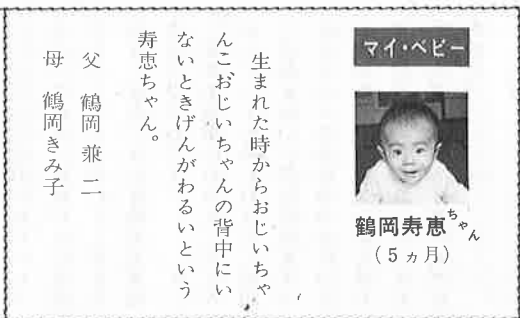 マイ・ベビー
鶴岡寿恵ちゃん
(5ヵ月)
生まれた時からおじいちゃ
んこおじいちゃんの背中にい
ないときげんがわるいという
寿恵ちゃん。
父 鶴岡兼二
母 鶴岡きみ子